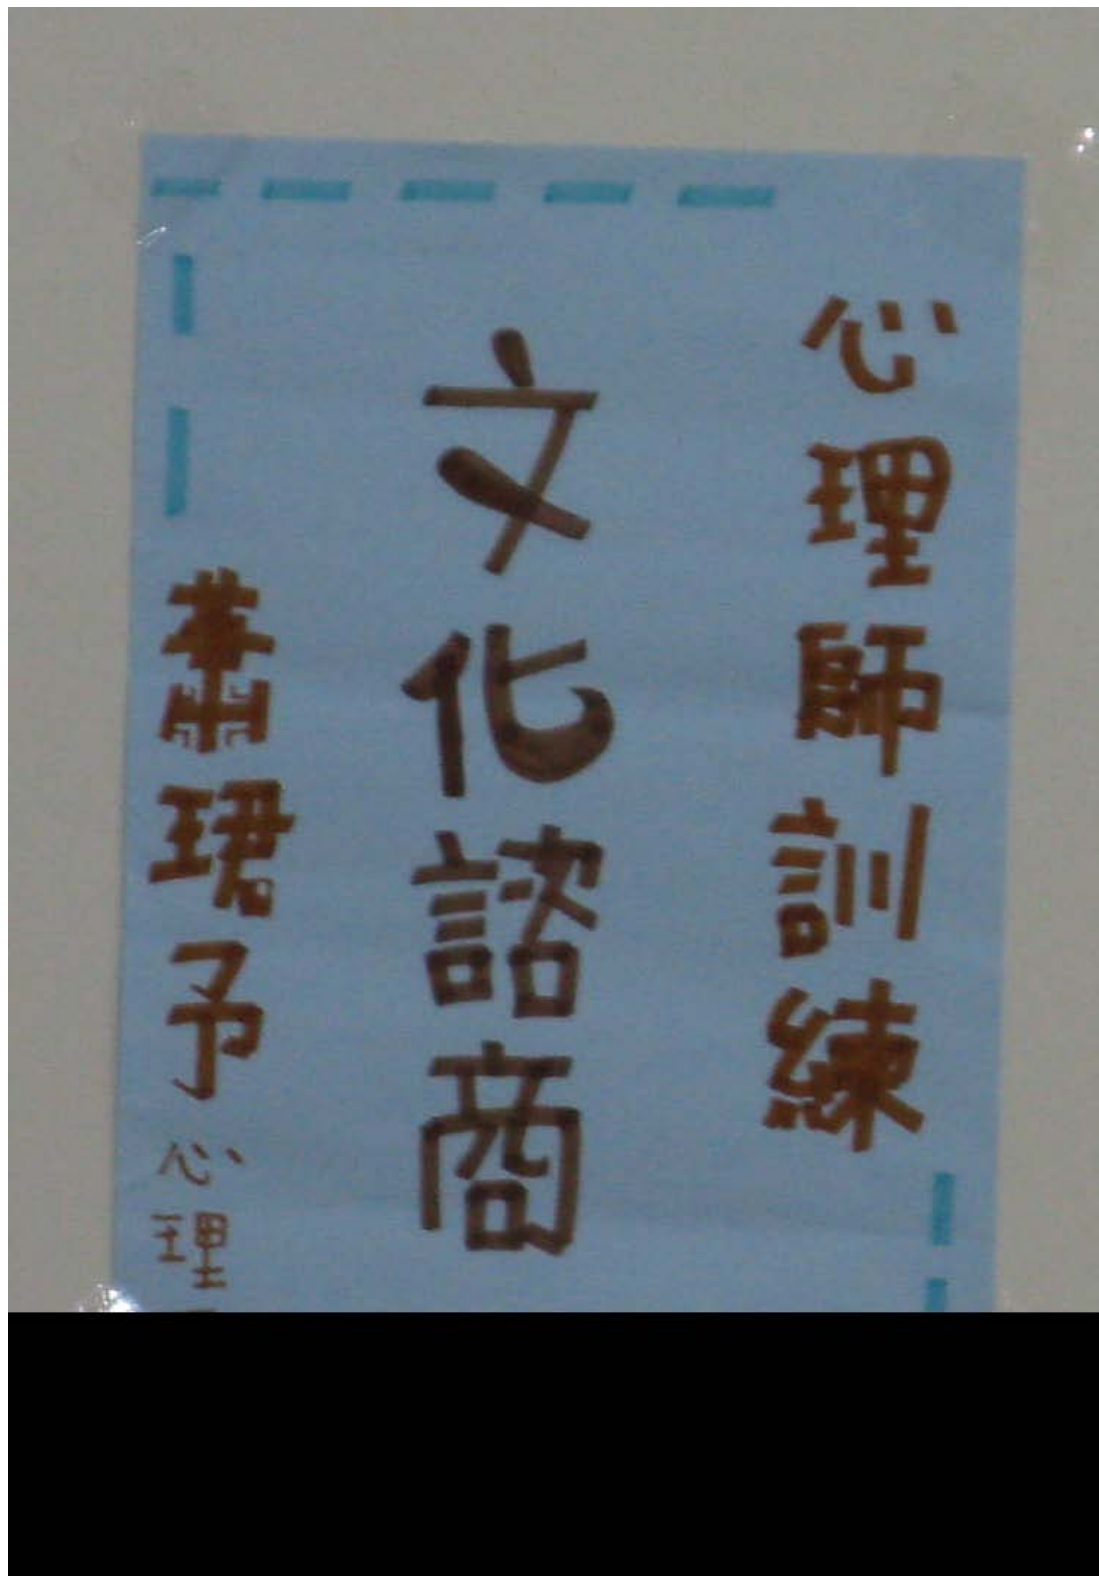 心理師訓練
文化諮商
蕭珺予心理